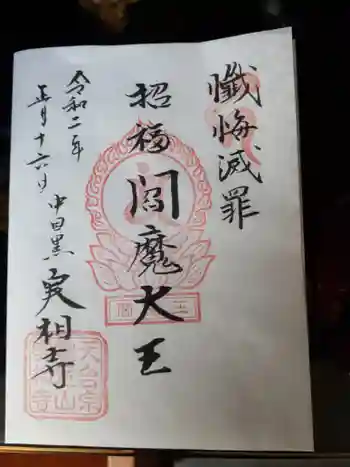 懺悔滅罪
招福閻魔大王
令和二年
正月十六日
中目黒 実相寺
天台宗